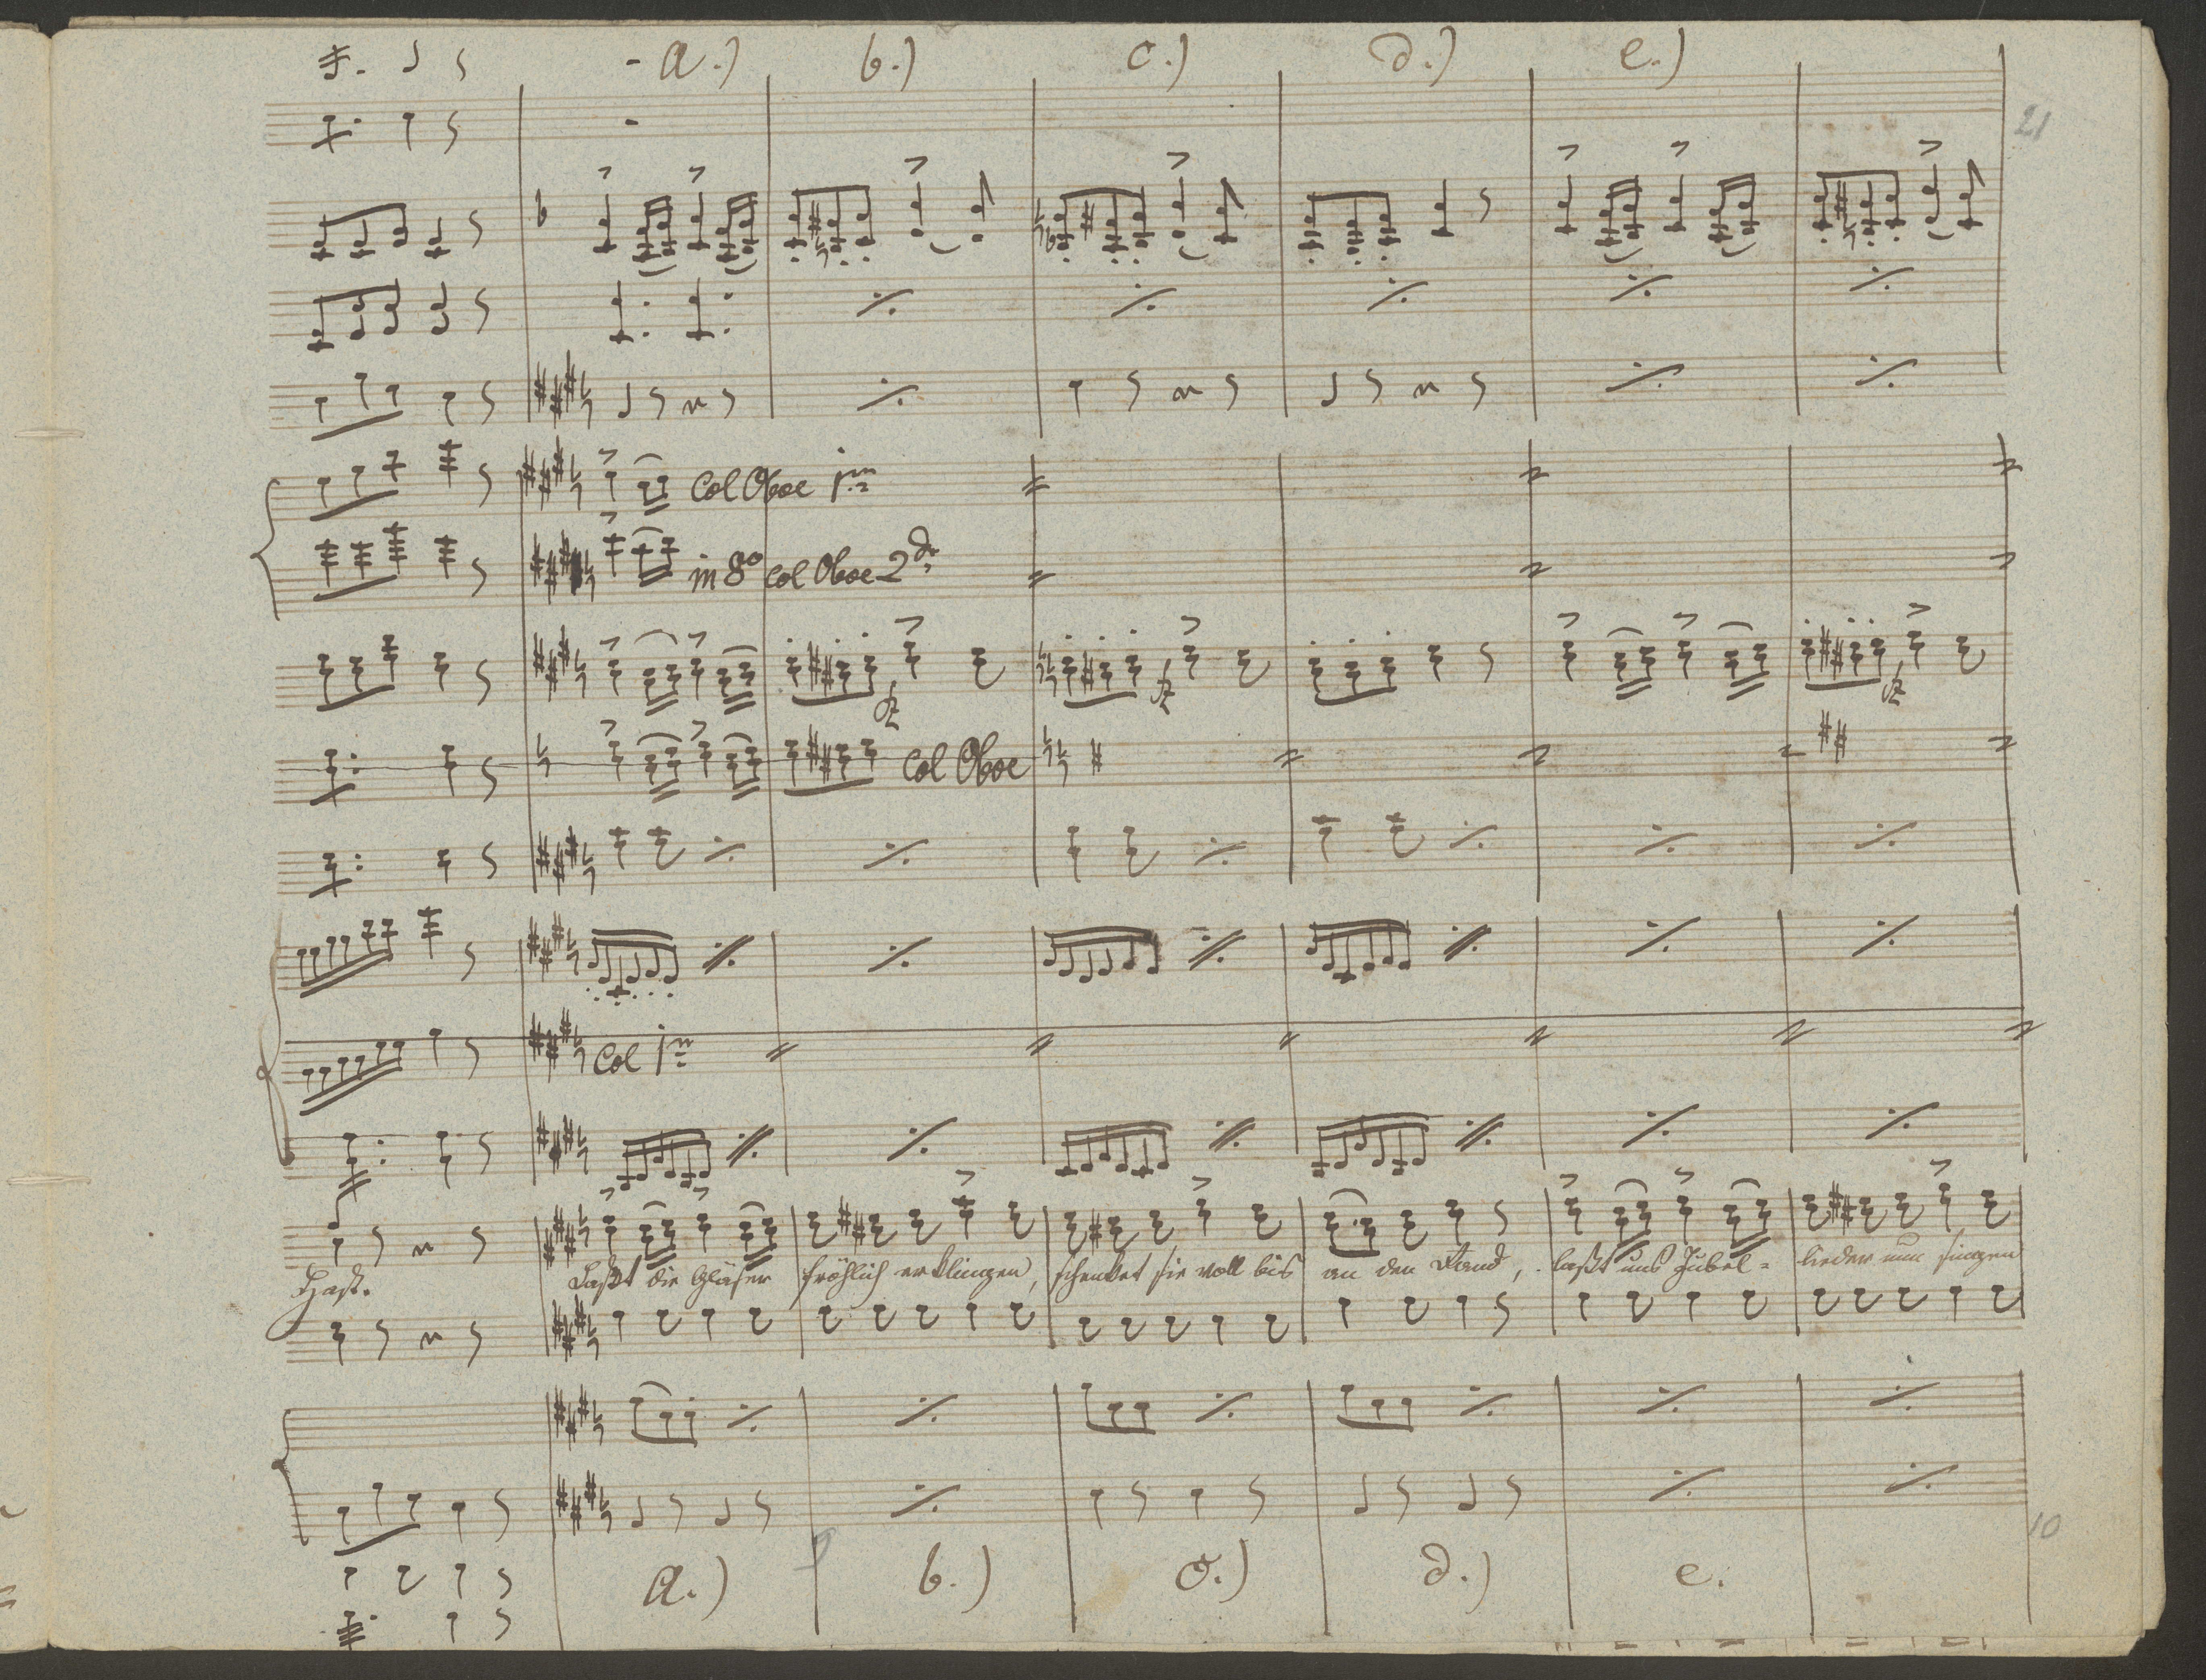 a.) b.) c.) d.) e.)
21
Col Oboe 1m
in 8o col Oboe 2do
Col Oboe
Col 1m
Hast. Laßt die Gläser fröhlich erklingen, schenket sie voll bis an den Rand, laßt uns Jubel= lieder nun singen
10
a.) b.) c.) d.) e.